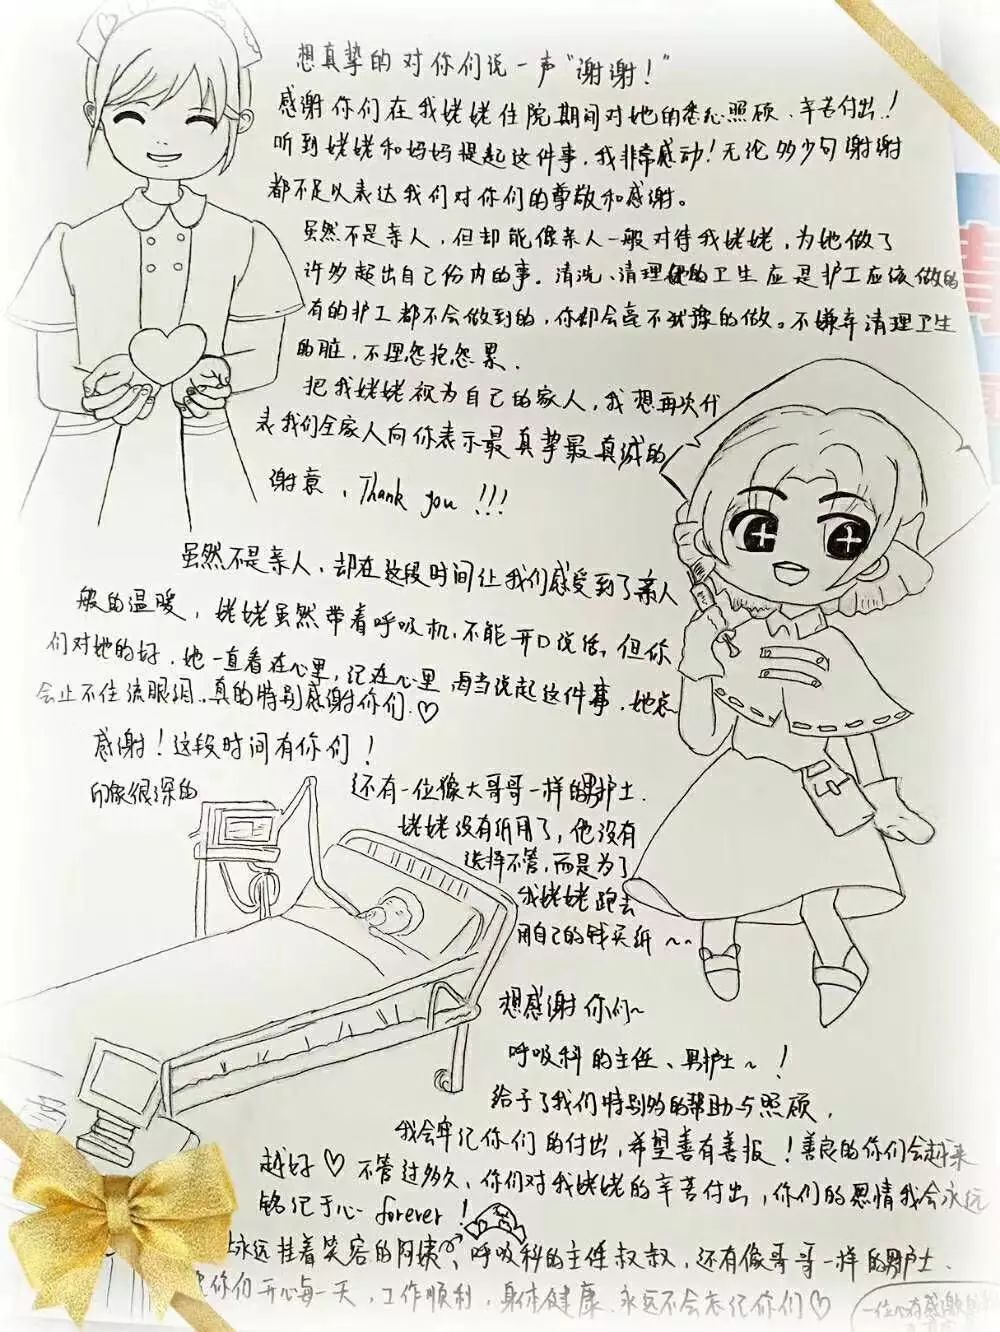 想真挚的对你们说一声“谢谢！”
感谢你们在我姥姥住院期间对她的悉心照顾、辛苦付出！
听到姥姥和妈妈提起这件事，我非常感动！无论多少句谢谢
都不足以表达我们对你们的尊敬和感谢。
虽然不是亲人，但却能像亲人一般对待我姥姥，为她做了
许多超出自己份内的事。清洗、清理她的卫生应是护工应该做的
有的护工都不会做到的，你却会毫不犹豫的做。不嫌弃清理卫生
的脏，不埋怨抱怨累.
把我姥姥视为自己的家人，我想再次代
表我们全家人向你表示最真挚最真诚的
谢意，Thank you !!!
虽然不是亲人，却在这段时间让我们感受到了亲人
般的温暖，姥姥虽然带着呼吸机，不能开口说话，但你
们对她的好，她一直看在心里，记在心里 每当说起这件事，她总
会止不住流眼泪..真的特别感谢你们.♡
感谢！这段时间有你们！
印象很深的
还有一位像大哥哥一样的男护士.
姥姥没有纸用了，他没有
选择不管，而是为了
我姥姥跑去
用自己的钱买纸~~
想感谢你们~
呼吸科的主任、男护士~！
给予了我们特别多的帮助与照顾，
我会牢记你们的付出，希望善有善报！善良的你们会越来
越好♡ 不管过多久，你们对我姥姥的辛苦付出，你们的恩情我会永远
铭记于心 forever！
永远挂着笑容的阿姨、呼吸科的主任叔叔，还有像哥哥一样的男护士.
你们开心每一天，工作顺利，身体健康.永远不会忘记你们♡
一位心存感激的